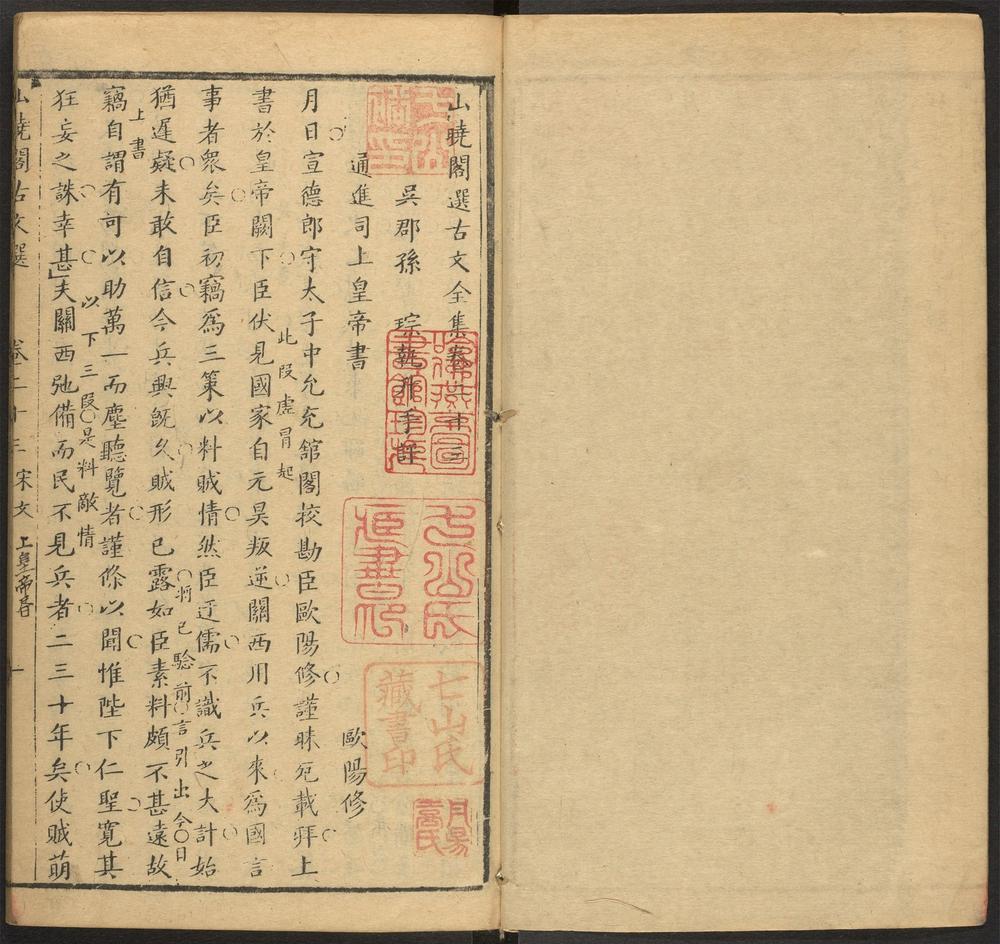 山曉閣選古文全集卷二十三
吳郡孫　琮執升手評
通進司上皇帝書　歐陽修
月日宣德郎守太子中允充館閣校勘臣歐陽修謹昧死載拜上
書於皇帝闕下臣伏見國家自元昊叛逆關西用兵以來為國言
此段虛冒起
事者衆矣臣初竊為三策以料賊情然臣迂儒不識兵之大計始
猶遲疑未敢自信今兵興既久賊形已露如臣素料頗不甚遠故
將已驗前言引出今日
上書
竊自謂有可以助萬一而塵聽覽者謹條以聞惟陛下仁聖寛其
狂妄之誅幸甚夫關西弛備而民不見兵者二三十年矣使賊萌
以下三段是料敵情
山曉閣古文選　卷二十三　宋文　上皇帝書　一
七山氏藏書印